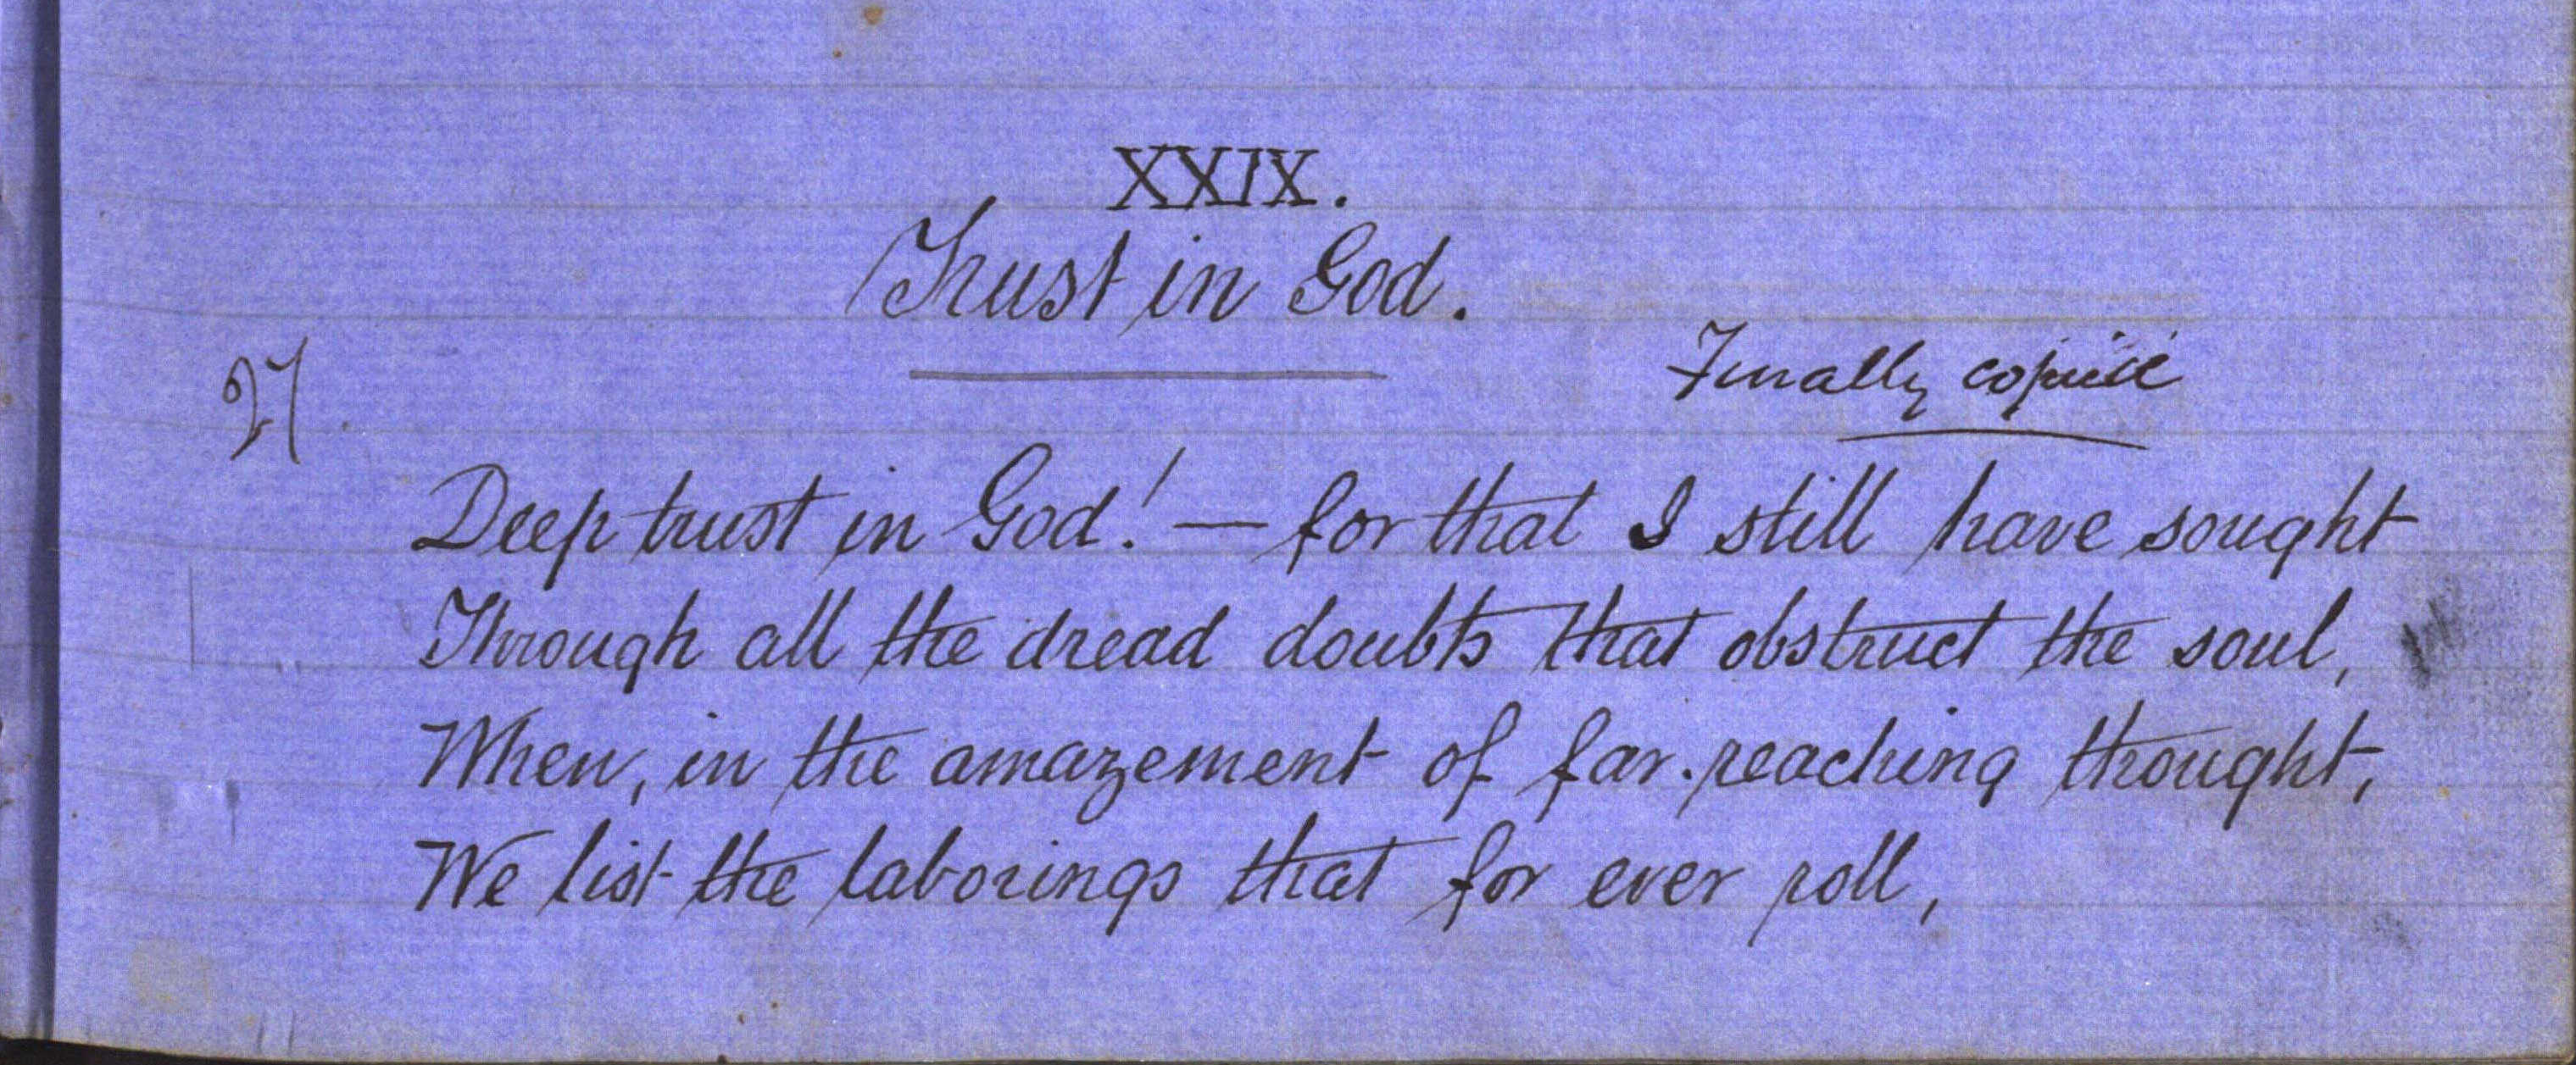 XXIX.
Trust in God.
27.
Finally copied
Deep trust in God! — for that I still have sought
Through all the dread doubts that obstruct the soul,
When, in the amazement of far-reaching thought,
We list the laborings that for ever roll,